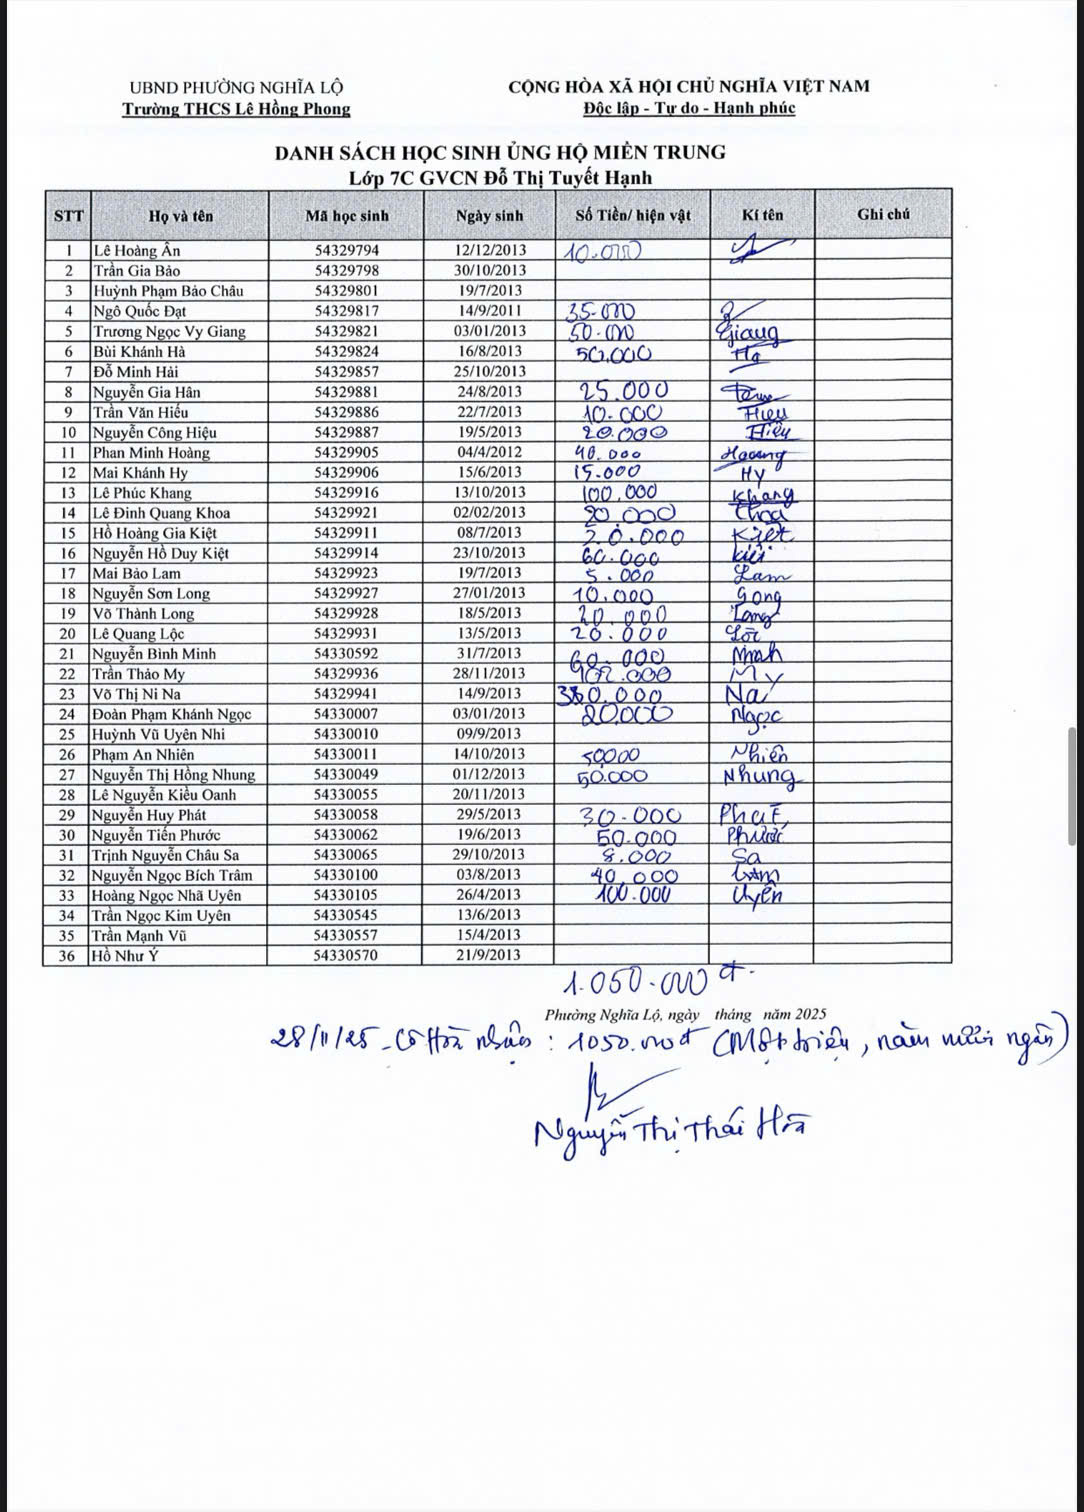 UBND PHƯỜNG NGHĨA LỘ
Trường THCS Lê Hồng Phong
CỘNG HÒA XÃ HỘI CHỦ NGHĨA VIỆT NAM
Độc lập - Tự do - Hạnh phúc
DANH SÁCH HỌC SINH ỦNG HỘ MIỀN TRUNG
Lớp 7C GVCN Đỗ Thị Tuyết Hạnh
STT Họ và tên Mã học sinh Ngày sinh Số Tiền/ hiện vật Kí tên Ghi chú
1 Lê Hoàng Ân 54329794 12/12/2013 10.000
2 Trần Gia Bảo 54329798 30/10/2013
3 Huỳnh Phạm Bảo Châu 54329801 19/7/2013
4 Ngô Quốc Đạt 54329817 14/9/2011 35.000
5 Trương Ngọc Vy Giang 54329821 03/01/2013 50.000 Giang
6 Bùi Khánh Hà 54329824 16/8/2013 50.000 Hà
7 Đỗ Minh Hải 54329857 25/10/2013
8 Nguyễn Gia Hân 54329881 24/8/2013 25.000
9 Trần Văn Hiếu 54329886 22/7/2013 10.000 Hiếu
10 Nguyễn Công Hiệu 54329887 19/5/2013 20.000 Hiệu
11 Phan Minh Hoàng 54329905 04/4/2012 40.000 Hoàng
12 Mai Khánh Hy 54329906 15/6/2013 15.000 Hy
13 Lê Phúc Khang 54329916 13/10/2013 100.000 Khang
14 Lê Đinh Quang Khoa 54329921 02/02/2013 20.000 Khoa
15 Hồ Hoàng Gia Kiệt 54329911 08/7/2013 20.000 Kiệt
16 Nguyễn Hồ Duy Kiệt 54329914 23/10/2013 60.000 Kiệt
17 Mai Bảo Lam 54329923 19/7/2013 5.000 Lam
18 Nguyễn Sơn Long 54329927 27/01/2013 10.000 Long
19 Võ Thành Long 54329928 18/5/2013 20.000 Long
20 Lê Quang Lộc 54329931 13/5/2013 20.000 Lộc
21 Nguyễn Bình Minh 54330592 31/7/2013 60.000 Minh
22 Trần Thảo My 54329936 28/11/2013 My
23 Võ Thị Ni Na 54329941 14/9/2013 Na
24 Đoàn Phạm Khánh Ngọc 54330007 03/01/2013 20.000 Ngọc
25 Huỳnh Vũ Uyên Nhi 54330010 09/9/2013
26 Phạm An Nhiên 54330011 14/10/2013 50000 Nhiên
27 Nguyễn Thị Hồng Nhung 54330049 01/12/2013 50.000 Nhung
28 Lê Nguyễn Kiều Oanh 54330055 20/11/2013
29 Nguyễn Huy Phát 54330058 29/5/2013 30.000 Phát
30 Nguyễn Tiến Phước 54330062 19/6/2013 50.000 Phước
31 Trịnh Nguyễn Châu Sa 54330065 29/10/2013 8.000 Sa
32 Nguyễn Ngọc Bích Trâm 54330100 03/8/2013 40.000 trâm
33 Hoàng Ngọc Nhã Uyên 54330105 26/4/2013 100.000 Uyên
34 Trần Ngọc Kim Uyên 54330545 13/6/2013
35 Trần Mạnh Vũ 54330557 15/4/2013
36 Hồ Như Ý 54330570 21/9/2013
1.050.000 đ.
Phường Nghĩa Lộ, ngày tháng năm 2025
28/11/25 - Cô Hòa nhận : 1050.000đ (Một triệu, năm mươi ngàn)
Nguyễn Thị Thái Hòa